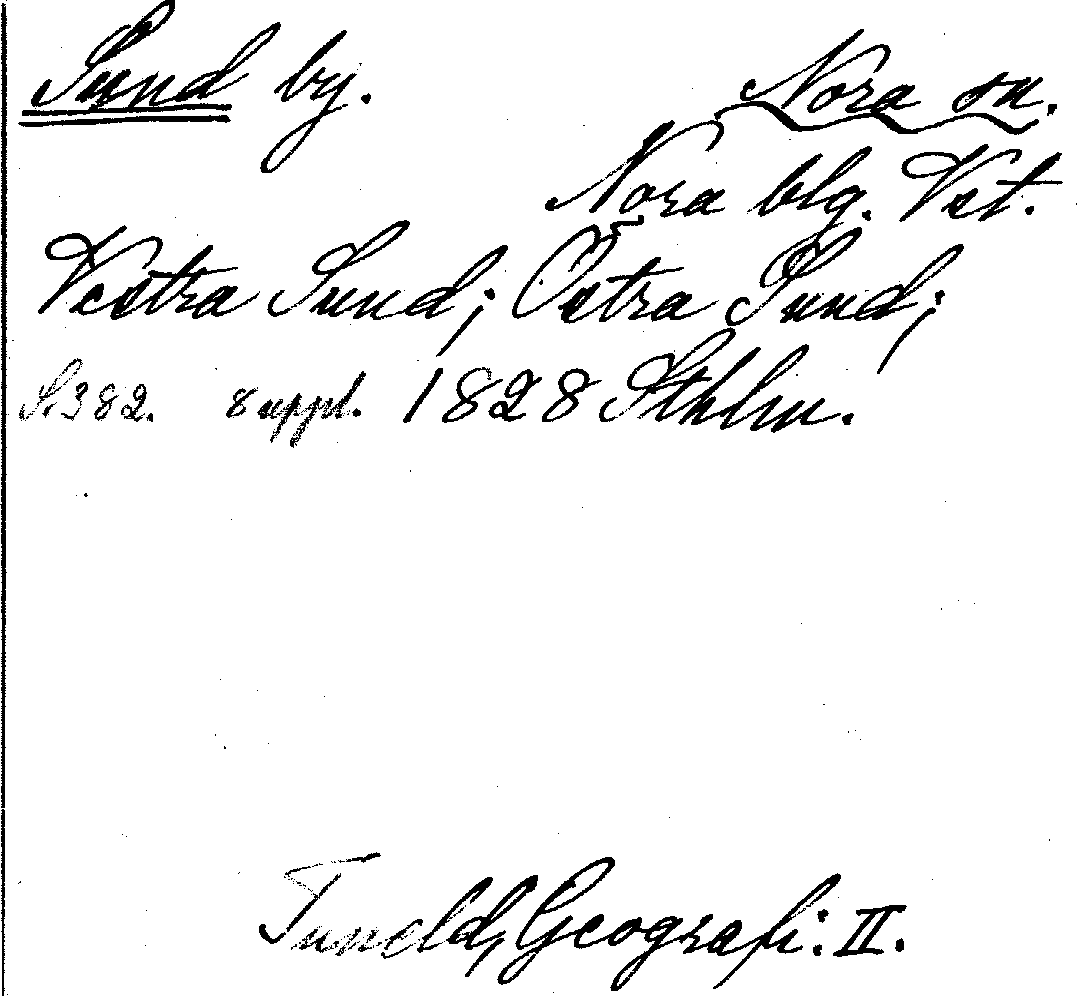 Sund by.
Nora sn.
Nora blg. Vst.
Vestra Sund; Östra Sund;
S. 382. 8 uppl. 1828 Sthlm.
Tuneld, Geografi: II.